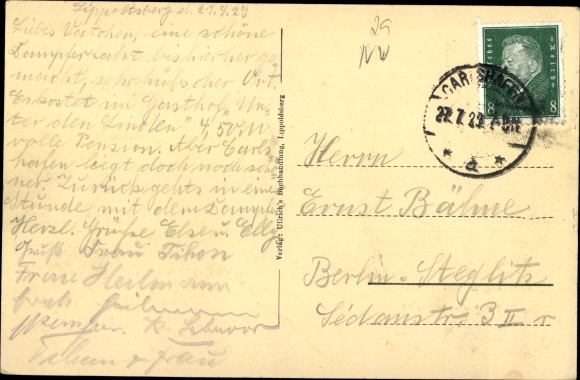 Lippoldsberg d. 27.7.29
Liebes Vatchen, eine schöne
Dampferfahrt bis hierher ge
macht, sehr hübscher Ort.
Es kostet im Gasthof „Un
ter den Linden" 4,50 M
volle Pension. Aber Carls
hafen liegt doch noch schö
ner. Zurück gehts in einer
Stunde mit dem Dampfer
Herzl. Grüße Else u. Elly
Gruß Frau
Frau
u. Frau
29
Verlag: Ullrich's Buchhandlung, Lippoldsberg
CARLSHAFEN
27.7.29. 7-8N
* a *
Deutsches Reich
8 8
Herrn
Ernst Bähme
Berlin-Steglitz
Sedanstr. 3 II r